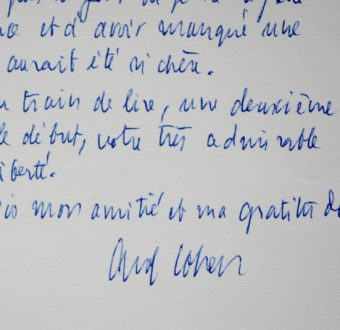 et d'avoir manqué une
aurait été si chère.
train de lire, une deuxième
début, votre très admirable
mon amitié et ma gratitude
Cohen